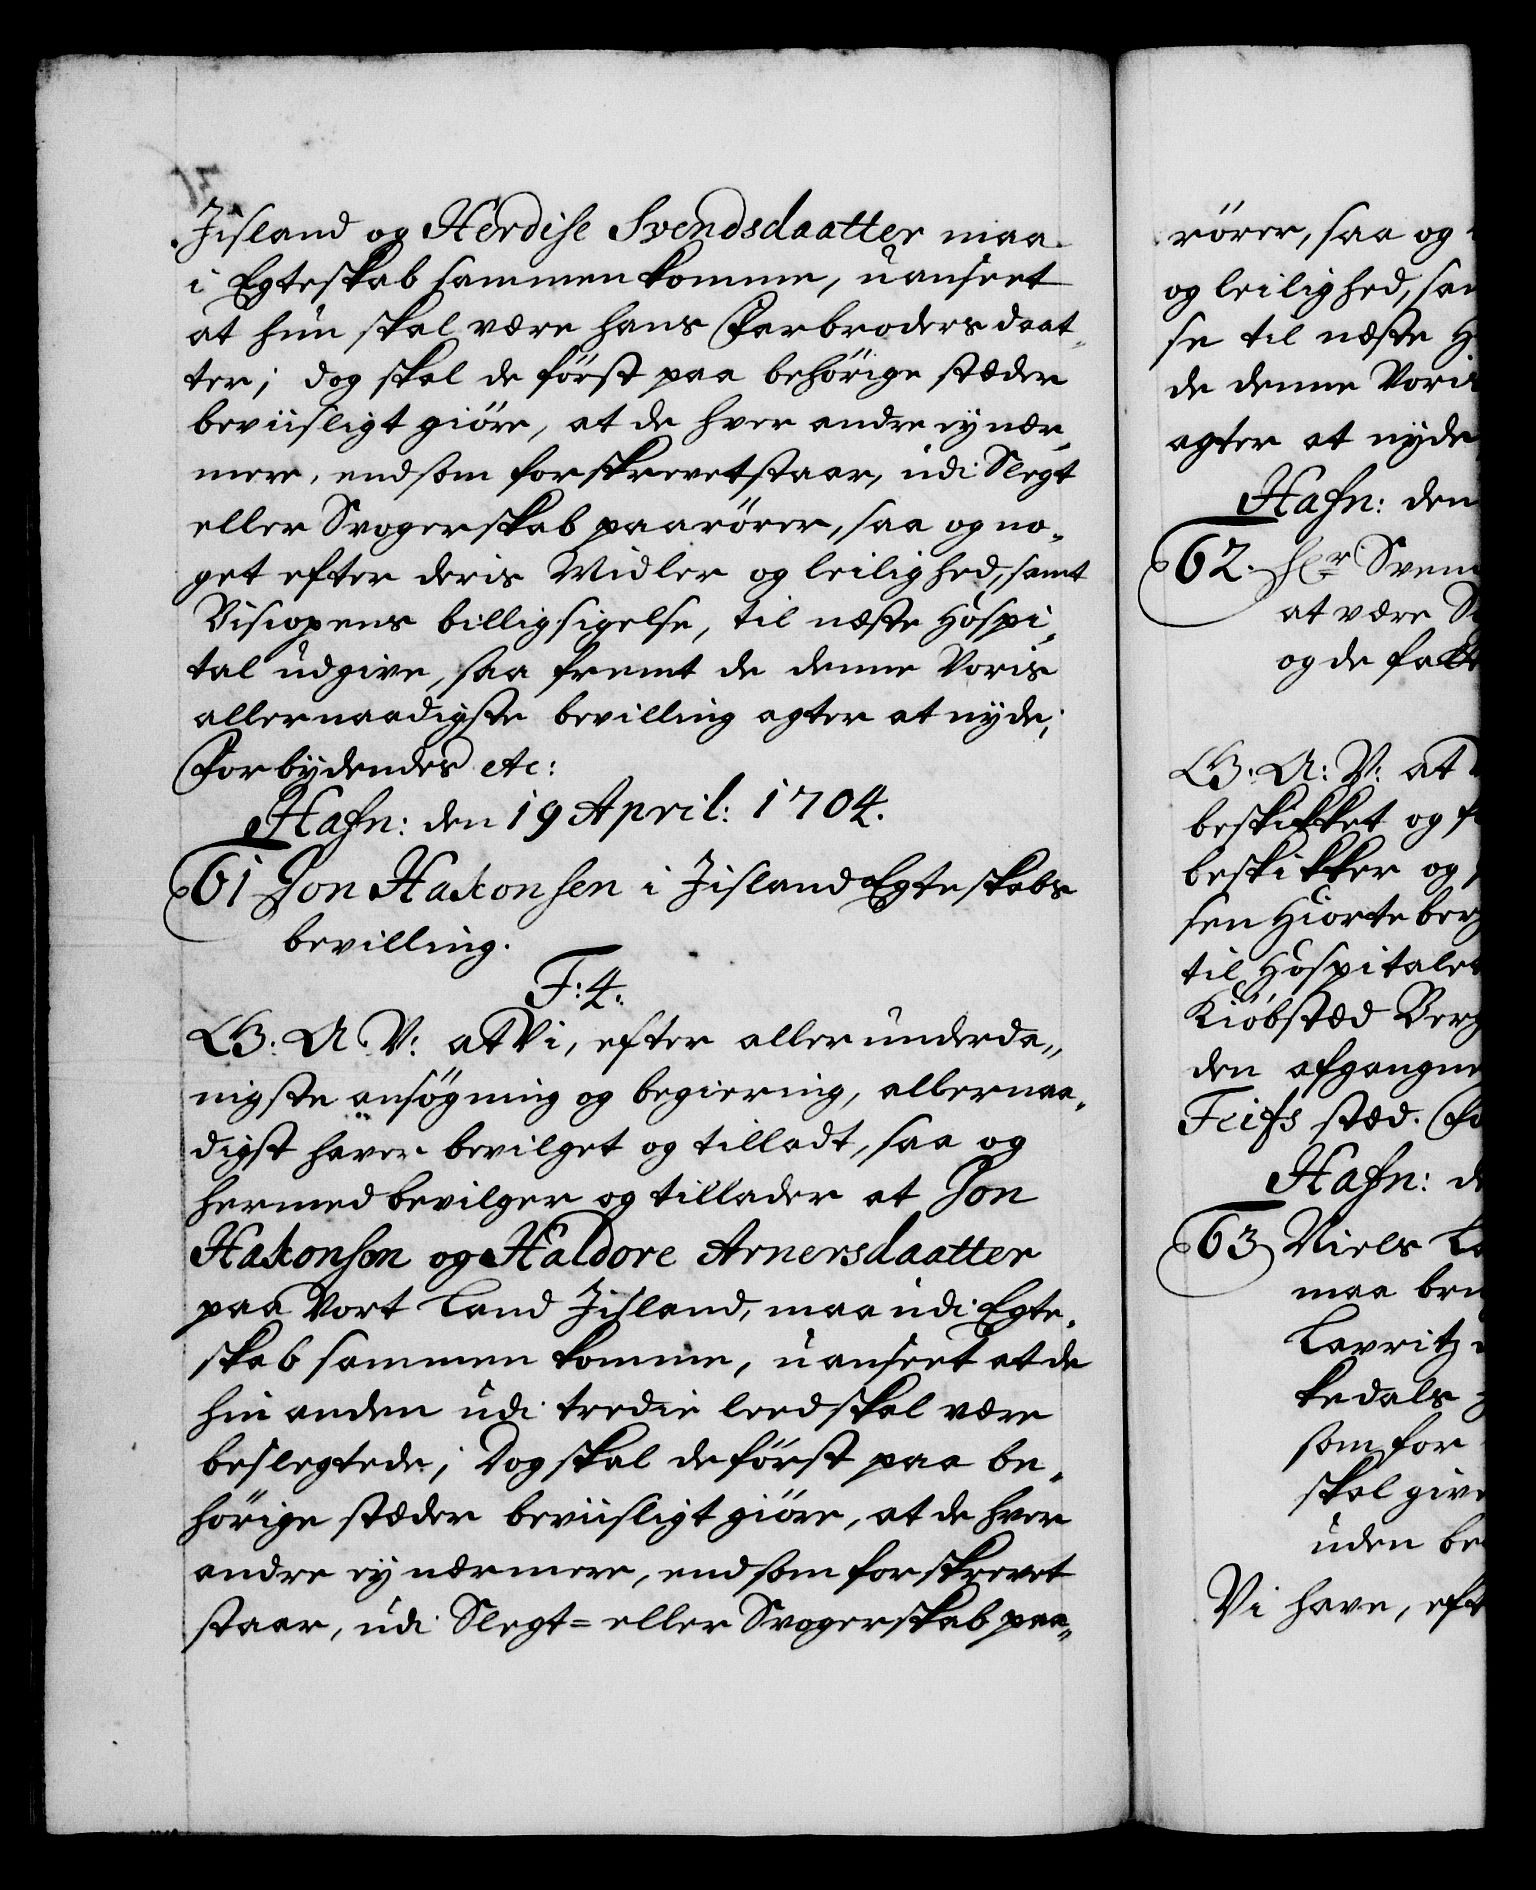 Jisland og Herdise Svendsdaatter maa
i Egteskab sammen komme, uanseet
at hun skal være hans Farbroders daat-
ter; dog skal de först paa behörige stæder
beviisligt giöre, at de hver andre ey nær-
mere, end som forskrevet staar, udi Slegt
eller Svogerskab paarörer, saa og no-
get efter deris Midler og leilighed, samt
Biscopens billigsigelse, til næste Hospi-
tal udgive, saa fremt de denne Voris
allernaadigste bevilling agter at nyde;
Forbydendes etc:
Hafn: den 19 April: 1704.
61 Jon Hakonsen i Jisland Egteskabs
bevilling.
F: 4.
G: A: V: at Vi, efter allerunderda-
nigste ansögning og begiering, allernaa-
digst haver bevilget og tilladt, saa og
hermed bevilger og tillader at Jon
Hakonsen og Haldore Arnersdaatter
paa Vort Land Jisland, maa udi Egte-
skab sammen komme, uanseet at de
hin anden udi tredie leed skal være
beslegtede; Dog skal de först paa be-
hörige stæder beviisligt giöre, at de hver
andre ey nærmere, end som forskrevet
staar, udi Slegt= eller Svogerskab paa-
rörer, saa og
og leilighed, sam
se til næste H
de denne Voris
agter at nyde
Hafn: den
62. Hr Sven
at være
og de fatt
G: A: V: at
beskikket og f
beskikker og
sen Hiorteberg
til Hospitalet
Kiöbstæd Berg
den afgangne
Feifs stæd. Fo
Hafn: d
63 Niels La
maa bru
Lavritz
kedals
som for
skal give
uden be
Vi have, eft